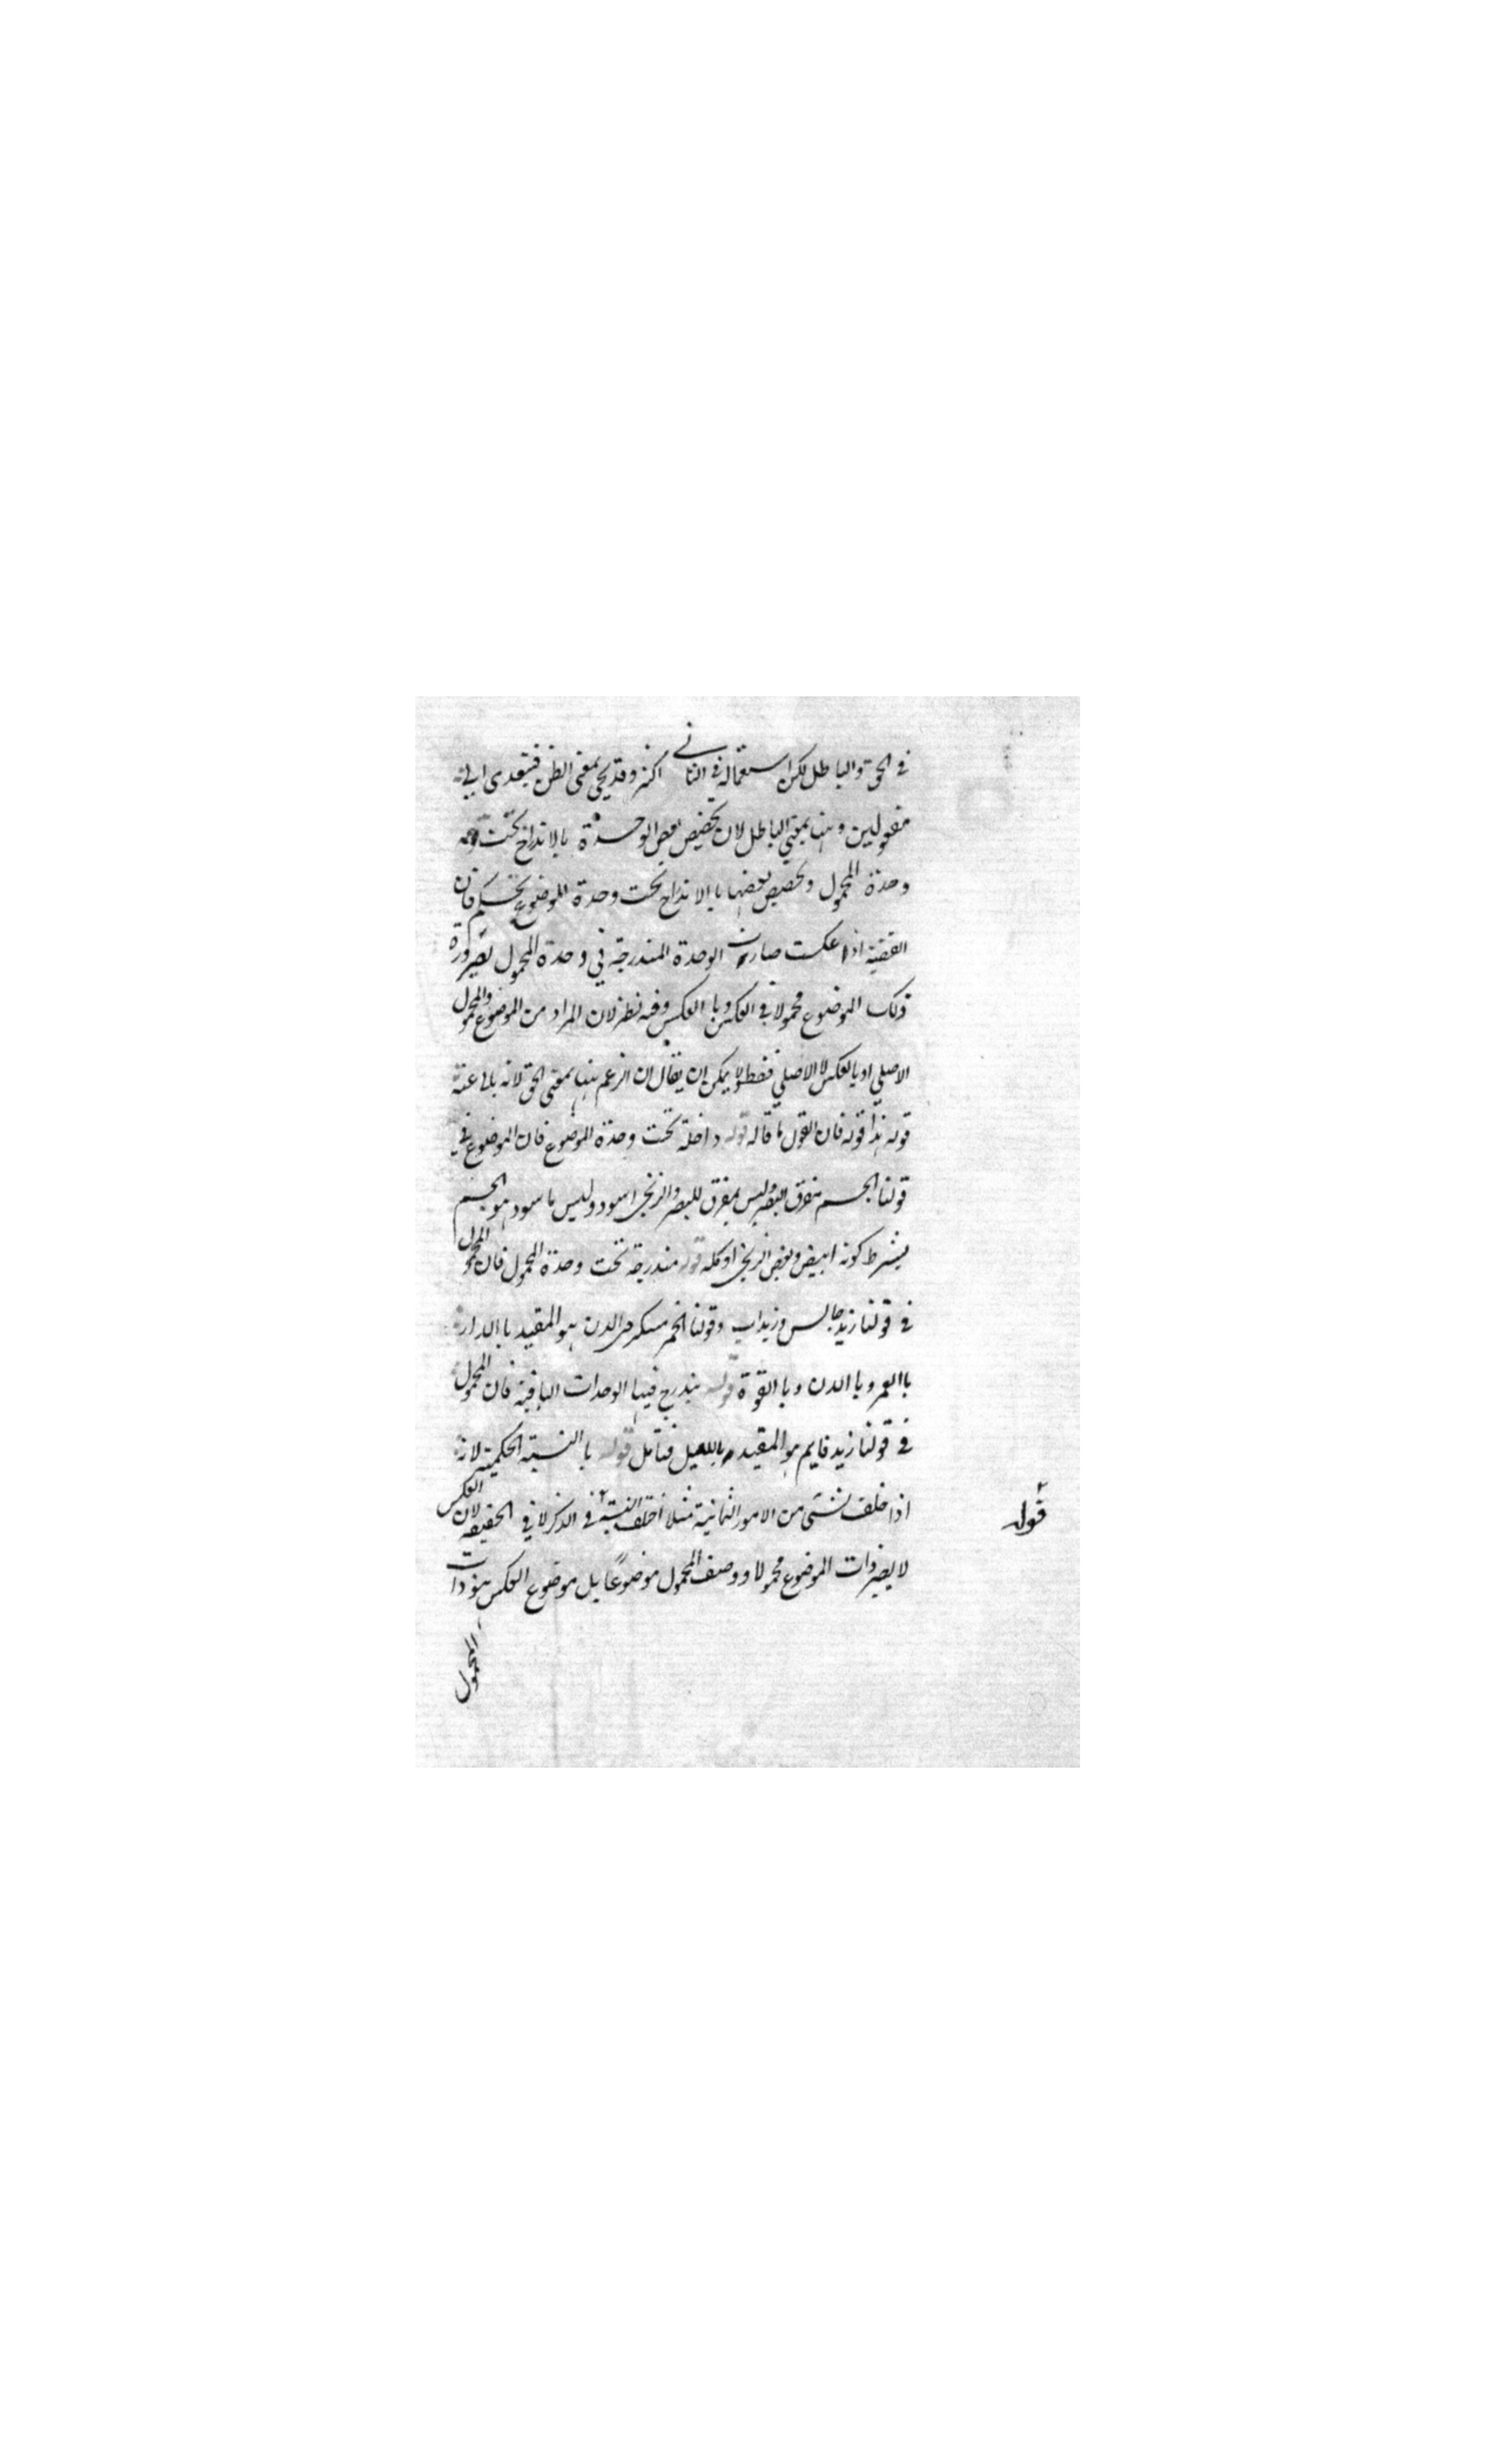 في الحق والباطل لكن استعماله في الثاني اكثر وقد يجئ بمعنى الظن فيتعدى الى
مفعولين وهنا بمعنى الباطل لان تخصيص بعض الوحدة بالاندراج تحت
وحدة المحمول وتخصيص بعضها باالاندراج تحت وحدة الموضوع تحكم فان
القضية اذا عكست صارت الوحدة المندرجة في وحدة المحمول لصيرورة
ذلك الموضوع محمولا في العكس وبا العكس وفيه نظر لان المراد من الموضوع والمحمول
الاصلي او بالعكس لا الاصلي فقط ولا يمكن ان يقال ان الزعم هنا بمعنى الحق لانه يابى عنه
قوله هذا قوله فان القول ما قاله قوله داخلة تحت وحدة الموضوع فان الموضوع في
قولنا الجسم مفرق للبصر وليس بمفرق للبصر والزنجي اسود وليس باسود هو الجسم
بشرط كونه ابيض وبعض الزنجي او كله قوله مندرجة تحت وحدة المحمول فان المحمول
في قولنا زيد جالس وزيد اب وقولنا الخمر مسكر في الدن هو المقيد باالدار
باالعمر وباالدن وباالقوة قوله يندرج فيها الوحدات الباقية فان المحمول
في قولنا زيد قايم هو المقيد بالليل فتامل قوله باالنسبة الحكمية لانه
اذا خلف شئ من الامور الثمانية مثلا اختلف النسبة في الذكر لا في الحقيقة لان العكس
قوله
لا يصير ذات الموضوع محمولا ووصف المحمول موضوعا بل موضوع العكس هو ذات
المحمول